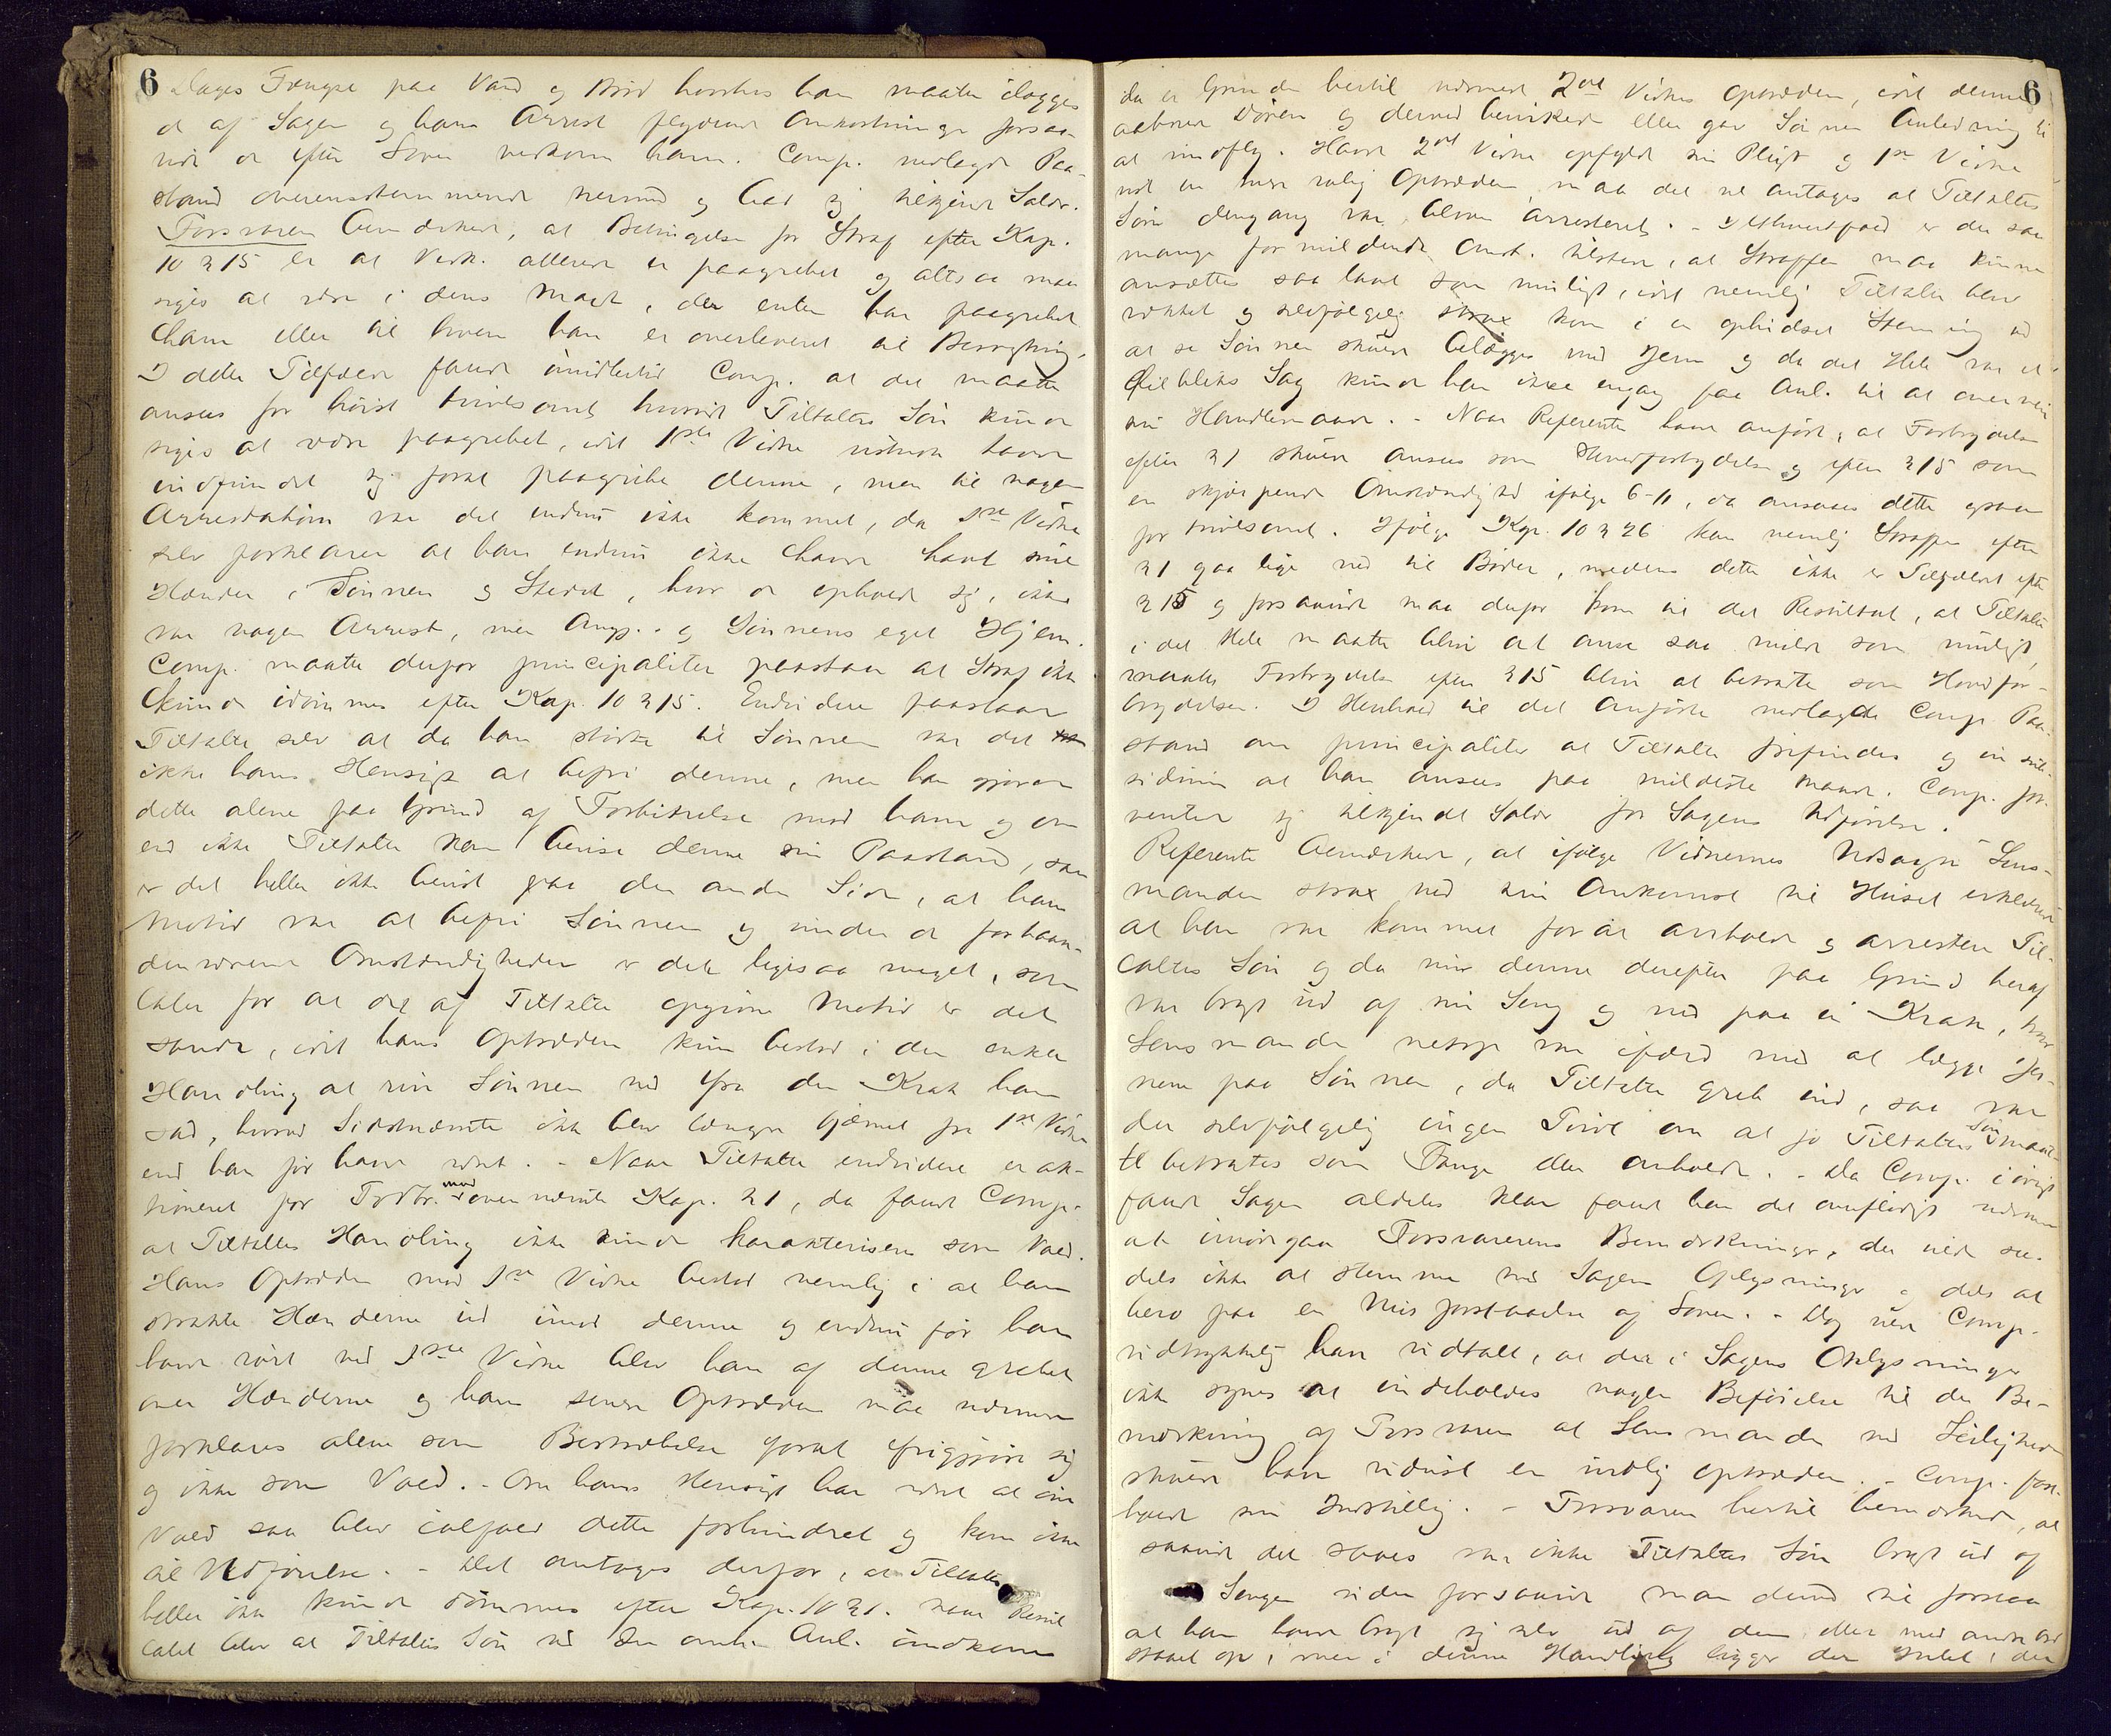 6
Dages Fængsel paa Vand og Brød hvorhos han maatte ilægges
de af Sagen og hans Arrest flydende Omkostninger forsaa-
vidt de efter Loven vedkom ham. Comp. nedlagde Paa-
stand overensstemmende hermed og bad sig tilkjendt Salær.
Forsvareren bemærkede, at Betingelsen for Straf efter Kap.
10 § 15 er at Vedk. allerede er paagrebet og altsaa maa
siges at være i dens Magt, der enten har paagrebet
ham eller til hvem han er overleveret til Bevogtning.
I dette Tilfælde fandt imidlertid Comp. at det maatte
ansees for høist tvivlsomt hvorvidt Tiltaltes Søn kunde
siges at være paagrebet, idet 1ste Vidne vistnok havde
indfundet sig forat paagribe denne, men til nogen
Arrestation var det endnu ikke kommet, da 1ste Vidne
selv forklarer at han endnu ikke havde havt sine
Hænder i Sønnen og Stedet, hvor de opholdt sig, ikke
var nogen Arrest, men Ang.s og Sønnens eget Hjem.
Comp. maatte derfor principaliter paastaa at Straf ikke
kunde idømmes efter Kap. 10 § 15. Endvidere paastaar
Tiltalte selv at da han stødte til Sønnen var det
ikke hans Hensigt at befri denne, men han gjorde
dette alene paa Grund af Forbitrelse mod ham og om
end ikke Tiltalte kan bevise denne sin Paastand, saa
er det heller ikke bevist paa den anden Side, at hans
Motiv var at befri Sønnen og under de forhaan-
denværende Omstændigheder er det ligesaa meget, som
taler for at det af Tiltalte opgivne Motiv er det
sande, idet hans Optræden kun bestod i den enkle
Handling at rive Sønnen ned fra den Krak han
sad, hvorved Sidstnævnte ikke blev længer fjernet fra 1ste Vidne
end han før havde været. - Naar Tiltalte endvidere er ak-
tioneret for Forbr. mod ovennævnte Kap. § 1, da fandt Comp.
at Tiltaltes Handling ikke kunde karakteriseres som Vold.
Hans Optræden mod 1ste Vidne bestod nemlig i at han
strakte Hænderne ud imod denne og endnu før han
havde rørt ved 1ste Vidne blev han af denne grebet
over Hænderne og hans senere Optræden maa nærmere
forklares alene som Bestræbelse forat frigjøre sig
og ikke som Vold. - Om hans Hensigt har været at øve
Vold saa blev ialfald dette forhindret og kom ikke
til Udførelse. - Det antages derfor, at Tiltalte
heller ikke kunde dømmes efter Kap. 10 § 1. Naar Resul-
tatet blev at Tiltaltes Søn ved den omh. Anl. undkom
6
da er Grunden hertil nærmest 2det Vidnes Optræden, idet denne
aabnede Døren og derved bevirkede eller gav Sønnen Anledning til
at undfly. Havde 2det Vidne opfyldt sin Pligt og 1ste Vidne
vist en mere rolig Optræden, maa det vel antages at Tiltaltes
Søn dengang var bleven arresteret. - Ialfald er der saa
mange formildende Omst. tilstede, at Straffen maa kunne
ansættes saa lavt som muligt, idet nemlig Tiltalte blev
vækket og selvfølgelig strax kom i en ophidset Stemning ved
at se Sønnen skulde belægges med Jern og da det Hele var et
Øiebliks Sag kunde han ikke engang faa Anl. til at overveie
sin Handlemaade. - Naar Referenten havde anført, at Forbrydelsen
efter § 1 skulde ansees som Hovedforbrydelse og efter § 15 som
en skjærpende Omstændighed ifølge 6-11, da ansaaes dette ogsaa
for tvivlsomt. Ifølge Kap. 10 § 26 kan nemlig Straffen efter
§ 1 gaa lige ned til Bøder, medens dette ikke er Tilfældet efter
§ 15 og forsaavidt maa derfor kom til det Resultat, at Tiltalte
i det Hele maatte blive at anse saa mildt som muligt,
maatte Forbrydelsen efter § 15 blive at betragte som Hovedfor-
brydelsen. I Henhold til det Anførte nedlagde Comp. Paa-
stand om principaliter at Tiltalte frifindes og in sub-
sidium at han ansees paa mildeste Maade. Comp. for-
venter sig tilkjendt Salær for Sagens Udførelse. -
Referenten bemærkede, at ifølge Vidnernes Udsagn Lens-
manden strax ved sin Ankomst til Huset erklærede
at han var kommet for at anholde og arrestere Til-
taltes Søn og da nu denne derefter paa Grund heraf
var bragt ud af sin Seng og ned paa en Krak, hvor
Lensmanden netop var ifærd med at lægge Jer-
nene paa Sønnen, da Tiltalte greb ind, saa var
der selvfølgelig ingen Tvivl om at jo Tiltaltes Søn maat-
te betragtes som Fange eller anholdt. - Da Comp. iøvrigt
fandt Sagen aldeles klar fandt han det overflødigt nærmere
at imødegaa Forsvarerens Bemærkninger, der dels
dels ikke at stemme med Sagens Oplysninger og dels at
bero paa en Misforstaaelse af Loven. - Dog vilde Comp.
udtrykkelig have udtalt, at der i Sagens Oplysninger
ikke synes at indeholdes nogen Beføielse til den Be-
mærkning af Forsvareren at Lensmanden ved Leiligheden
skulde have udvist en uvorlig Optræden. - Comp. fast-
holdt sin Indstilling. - Forsvareren hertil bemærkede, at
saavidt det saaes var ikke Tiltaltes Søn bragt ud af
Sengen uden forsaavidt man dermed vil forstaa
at han havde bragt sig selv ud af den eller med andre Ord
staaet op, men i denne Handling ligger der intet, der